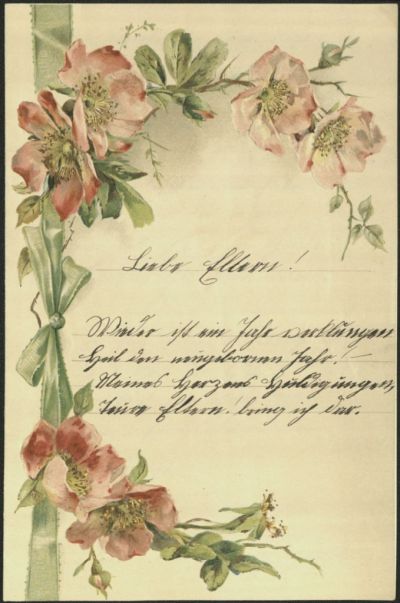 Liebe Eltern!
Wieder ist ein Jahr verklungen
Heil dem neugebornen Jahr! –
Meines Herzens Huldigungen,
Teure Eltern! bring ich dar.